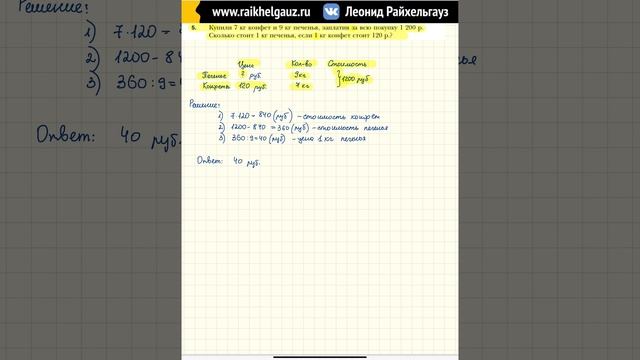 www.raikhelgauz.ru Леонид Райхельгауз
5. Купили 7 кг конфет и 9 кг печенья, заплатив за всю покупку 1 200 р.
Сколько стоит 1 кг печенья, если 1 кг конфет стоит 120 р.?
Цена Кол-во Стоимость
Печенье ? руб. 9кг
1200 руб
Конфеты 120 руб. 7 кг
Решение:
1) 7·120 = 840 (руб) – стоимость конфет
2) 1200 - 840 = 360 (руб) – стоимость печенья
3) 360 : 9 = 40 (руб) – цена 1 кг печенья
Ответ: 40 руб.
Решение:
1) 7·120 =
2) 1200 - 84
3) 360 : 9 =
Ответ: 40 руб.